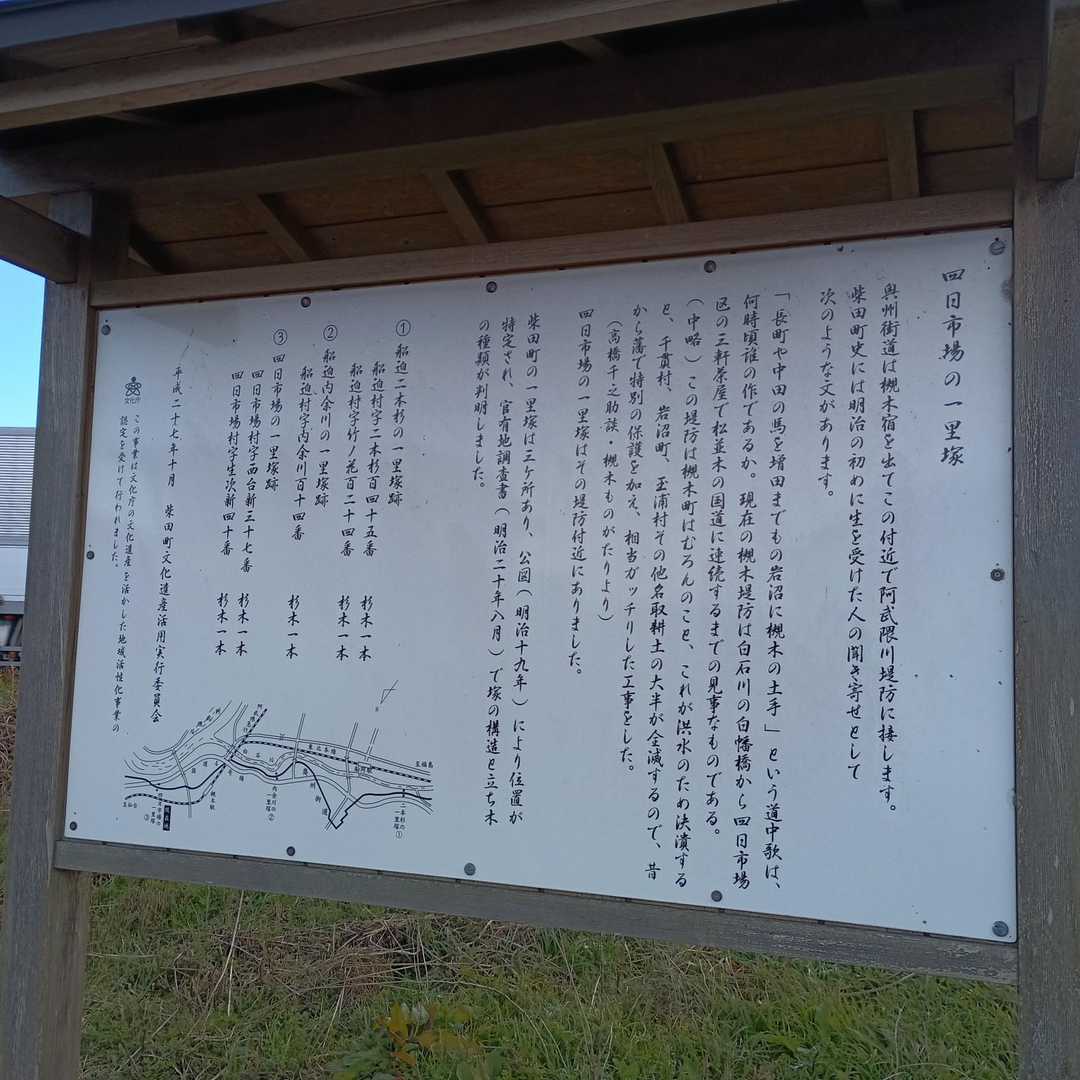 四日市場の一里塚
奥州街道は槻木宿を出てこの付近で阿武隈川堤防に接します。
柴田町史には明治の初めに生を受けた人の聞き寄せとして
次のような文があります。
「長町や中田の馬を増田までもの岩沼に槻木の土手」という道中歌は、
何時頃誰の作であるか。現在の槻木堤防は白石川の白幡橋から四日市場
区の三軒茶屋で松並木の国道に連続するまでの見事なものである。
(中略)この堤防は槻木町はむろんのこと、これが洪水のため決潰する
と、千貫村、岩沼町、玉浦村その他名取耕土の大半が全滅するので、昔
から藩で特別の保護を加え、相当ガッチリした工事をした。
(高橋千之助談・槻木ものがたりより)
四日市場の一里塚はその堤防付近にありました。
柴田町の一里塚は三ケ所あり、公図(明治十九年)により位置が
特定され、官有地調査書(明治二十年八月)で塚の構造と立ち木
の種類が判明しました。
① 船迫二本杉の一里塚跡
船迫村字二本杉百四十五番 杉木一本
船迫村字竹ノ花百二十四番 杉木一本
② 船迫内余川の一里塚跡
船迫村字内余川百十四番 杉木一本
③ 四日市場の一里塚跡
四日市場村字西台新三十七番 杉木一本
四日市場村字生次新四十番 杉木一本
平成二十七年十月 柴田町文化遺産活用実行委員会
文化庁
この事業は文化庁の文化遺産を活かした地域活性化事業の
認定を受けて行われました。
至福島
東北本線
船岡駅
白石川
奥州街道
国道4号線
槻木駅
至仙台
二本杉の一里塚①
内余川の一里塚②
四日市場の一里塚③